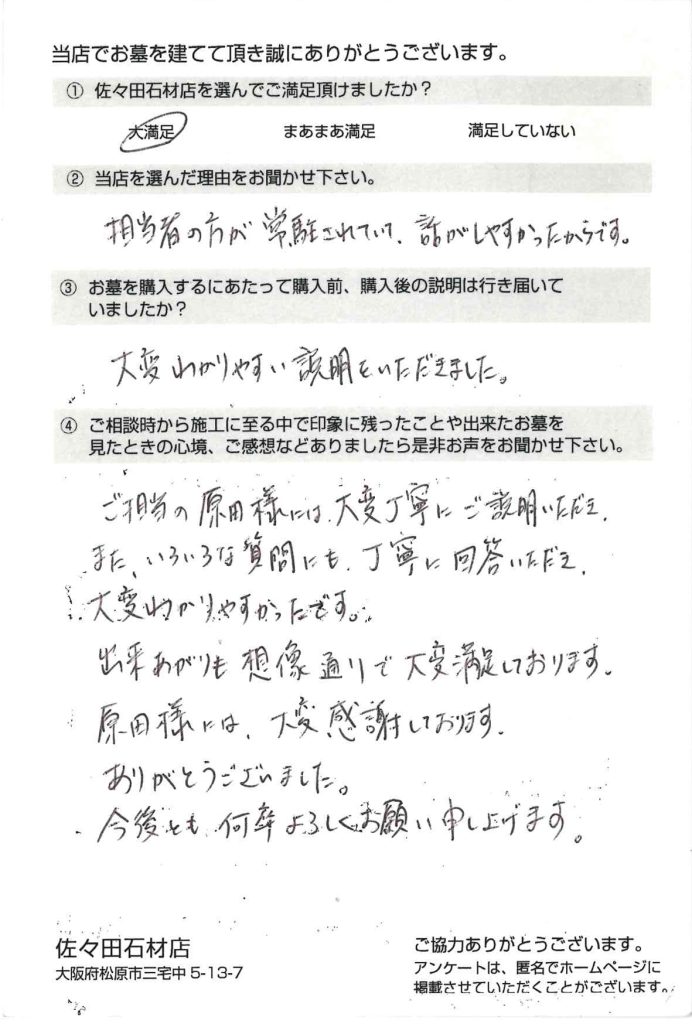 当店でお墓を建てて頂き誠にありがとうございます。
① 佐々田石材店を選んでご満足頂けましたか？
大満足 まあまあ満足 満足していない
② 当店を選んだ理由をお聞かせ下さい。
担当者の方が常駐されていて、話がしやすかったからです。
③ お墓を購入するにあたって購入前、購入後の説明は行き届いて
いましたか？
大変わかりやすい説明をいただきました。
④ ご相談時から施工に至る中で印象に残ったことや出来たお墓を
見たときの心境、ご感想などありましたら是非お声をお聞かせ下さい。
ご担当の原田様には、大変丁寧にご説明いただき、
また、いろいろな質問にも、丁寧に回答いただき、
大変わかりやすかったです。
出来あがりも想像通りで大変満足しております。
原田様には、大変感謝しております。
ありがとうございました。
今後とも、何卒よろしくお願い申し上げます。
佐々田石材店
大阪府松原市三宅中 5-13-7
ご協力ありがとうございます。
アンケートは、匿名でホームページに
掲載させていただくことがございます。